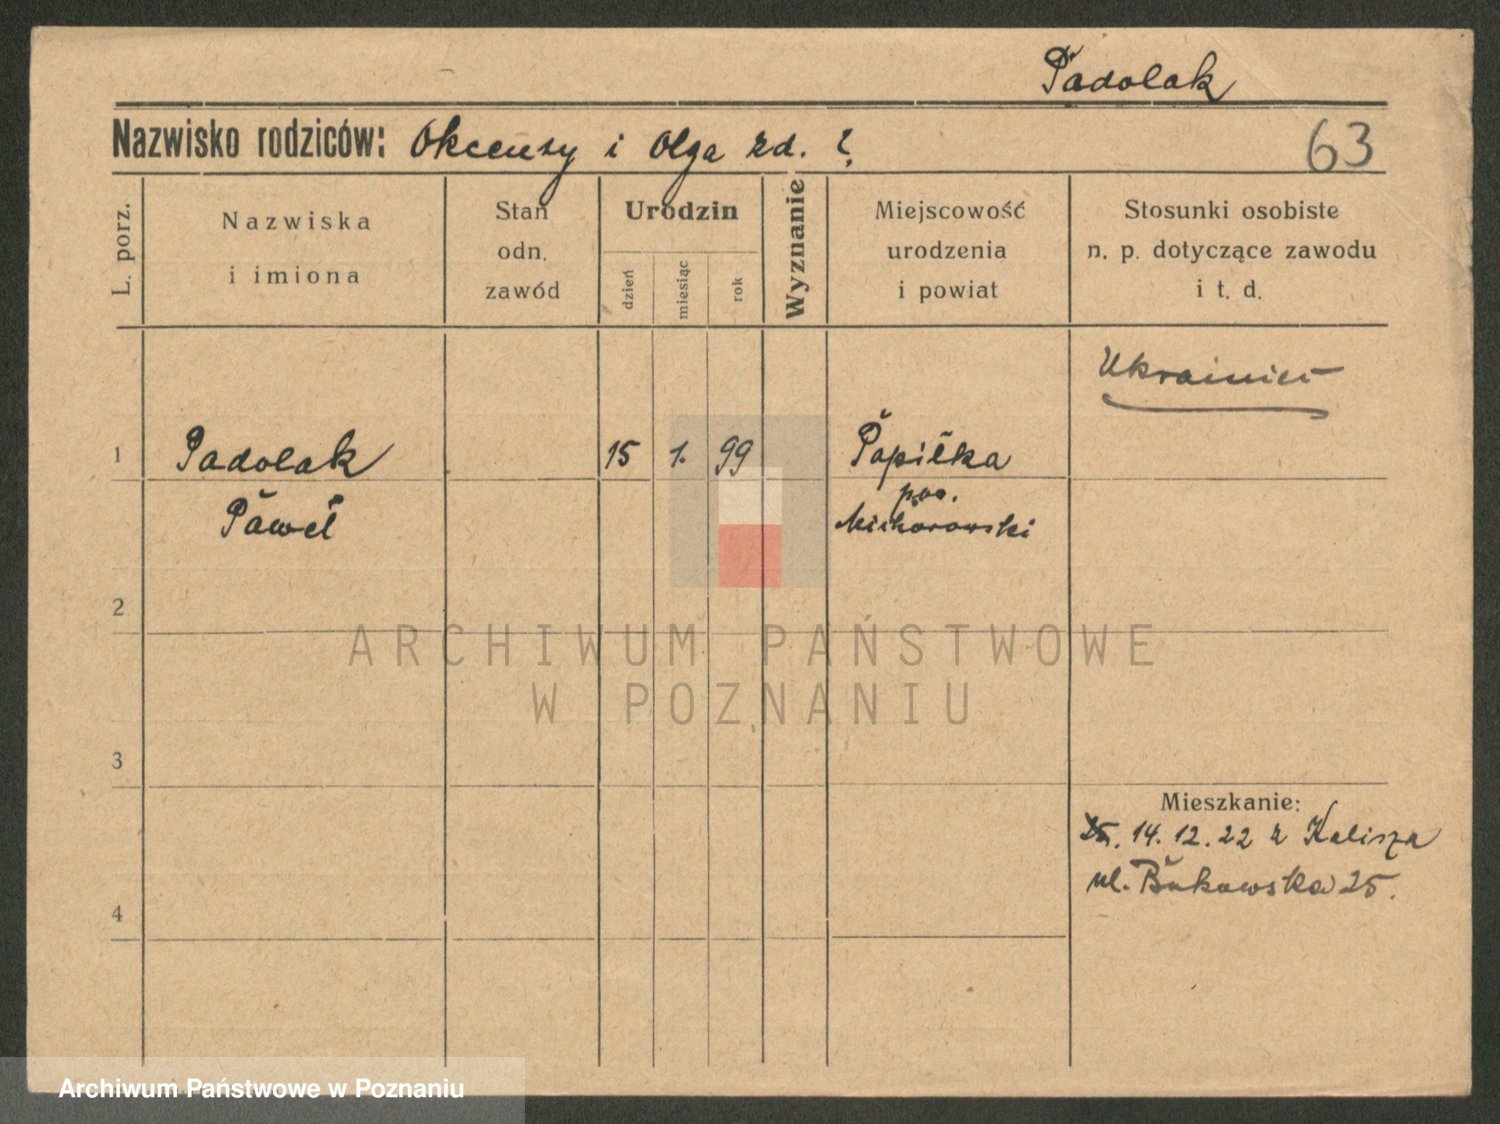 Padolak
Nazwisko rodziców: Okcensy i Olga zd. ?
63
L. porz.
Nazwiska
i imiona
Stan
odn.
zawód
Urodzin
dzień
miesiąc
rok
Wyznanie
Miejscowość
urodzenia
i powiat
Stosunki osobiste
n. p. dotyczące zawodu
i t. d.
Ukrainiec
1 Padolak 15 1. 99 Papiłka
Paweł
pow.
2
ARCHIWUM PAŃSTWOWE
W POZNANIU
3
Mieszkanie:
14.12.22 z Kalisza
ul. Bukowska 25.
4
Archiwum Państwowe w Poznaniu